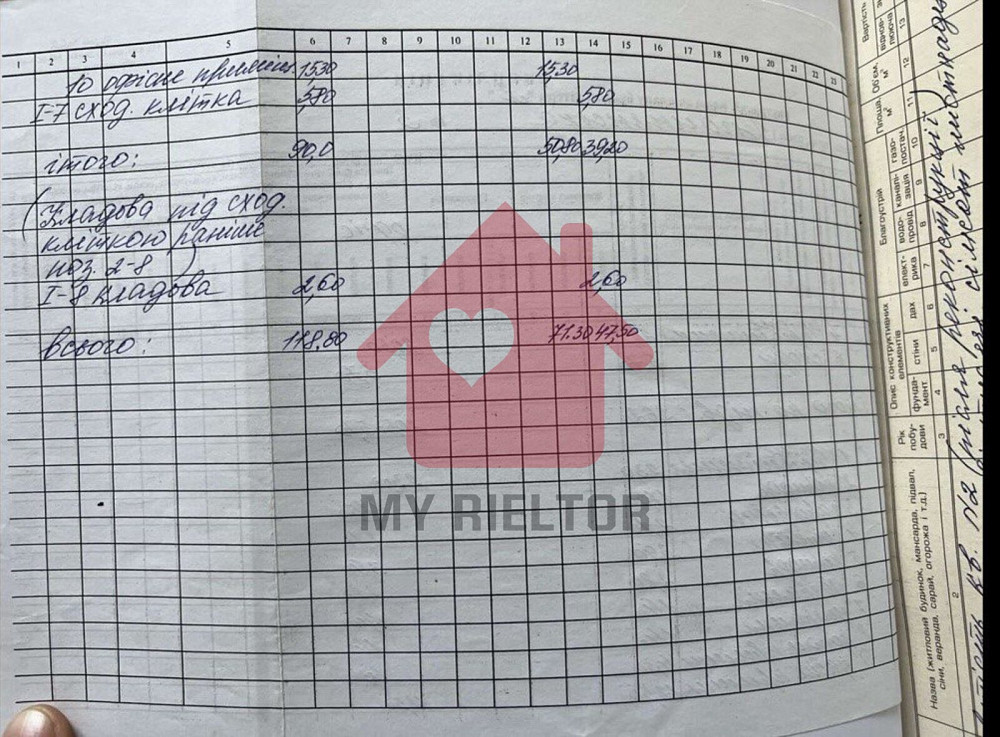 1 2 3 4 5 6 7 8 9 10 11 12 13 14 15 16 17 18 19 20 21 22 23
10 офісне приміщ. 15,30 15,30
I-7 сход. клітка 5,80 5,80
ітого: 90,0 50,80 39,20
(Кладова під сход.
кліткою раніше
поз. 2-8)
I-8 кладова 2,60 2,60
всього: 118,80 71.30 47,50
MY RIELTOR
Назва (житловий будинок, мансарда, підвал,
сіни, веранда, сарай, огорожа і т.д.)
Рік
побу-
дови
Опис конструктивних
елементів
фунда-
мент
стіни
дах
Благоустрій
елект-
рика
водо-
провід
каналі-
зація
газо-
постач.
Площа,
м²
Об'єм,
м³
Вартість
віднов-
лююча
2 3 4 5 6 7 8 9 10 11 12 13
кв. №2 (після реконструкції)